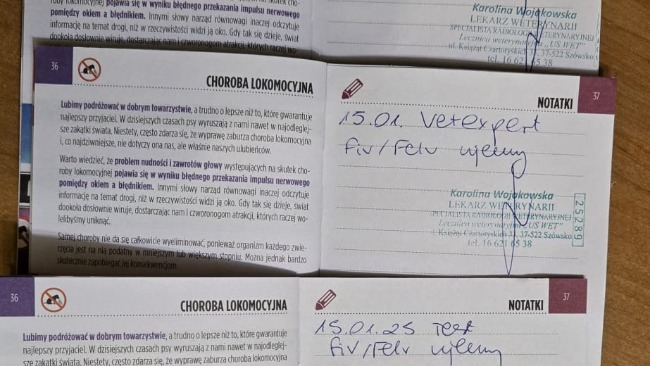 pojawia się w wyniku błędnego przekazania impulsu nerwowego
pomiędzy okiem a błędnikiem. Innymi słowy narząd równowagi inaczej odczytuje
informację na temat drogi, niż w rzeczywistości widzi ja oko. Gdy tak się dzieje, świat
dookoła dosłownie wiruje, dostarczając nam i czworonogom atrakcji, których raczej
Karolina Wojakowska
LEKARZ WETERYNARII
SPECJALISTA RADIOLOGII WETERYNARYJNEJ
Lecznica weterynaryjna „US WET”
ul. Książąt Czartoryskich 31, 37-522 Szówsko
tel. 16 621 65 38
36
CHOROBA LOKOMOCYJNA
Lubimy podróżować w dobrym towarzystwie, a trudno o lepsze niż to, które gwarantuje
najlepszy przyjaciel. W dzisiejszych czasach psy wyruszają z nami nawet w najodleglej-
sze zakątki świata. Niestety, często zdarza się, że wyprawę zaburza choroba lokomocyjna
i, co najdziwniejsze, nie dotyczy ona nas, ale właśnie naszych ulubieńców.
Warto wiedzieć, że problem nudności i zawrotów głowy występujących na skutek cho-
roby lokomocyjnej pojawia się w wyniku błędnego przekazania impulsu nerwowego
pomiędzy okiem a błędnikiem. Innymi słowy narząd równowagi inaczej odczytuje
informację na temat drogi, niż w rzeczywistości widzi ja oko. Gdy tak się dzieje, świat
dookoła dosłownie wiruje, dostarczając nam i czworonogom atrakcji, których raczej wo-
lelibyśmy uniknąć.
Samej choroby nie da się całkowicie wyeliminować, ponieważ organizm każdego zwie-
rzęcia jest na nią podatny w mniejszym lub większym stopniu. Można jednak bardzo
skutecznie zapobiegać jej konsekwencjom
NOTATKI
37
15.01. Vetexpert
fiv/Felv ujemny
Karolina Wojakowska
LEKARZ WETERYNARII
SPECJALISTA RADIOLOGII WETERYNARYJNEJ
Lecznica weterynaryjna „US WET”
ul. Książąt Czartoryskich 31, 37-522 Szówsko
tel. 16 621 65 38
25289
36
CHOROBA LOKOMOCYJNA
Lubimy podróżować w dobrym towarzystwie, a trudno o lepsze niż to, które gwarantuje
najlepszy przyjaciel. W dzisiejszych czasach psy wyruszają z nami nawet w najodleglej-
sze zakątki świata. Niestety, często zdarza się, że wyprawę zaburza choroba lokomocyjna
NOTATKI
37
15.01.25 Test
fiv/Felv ujemny